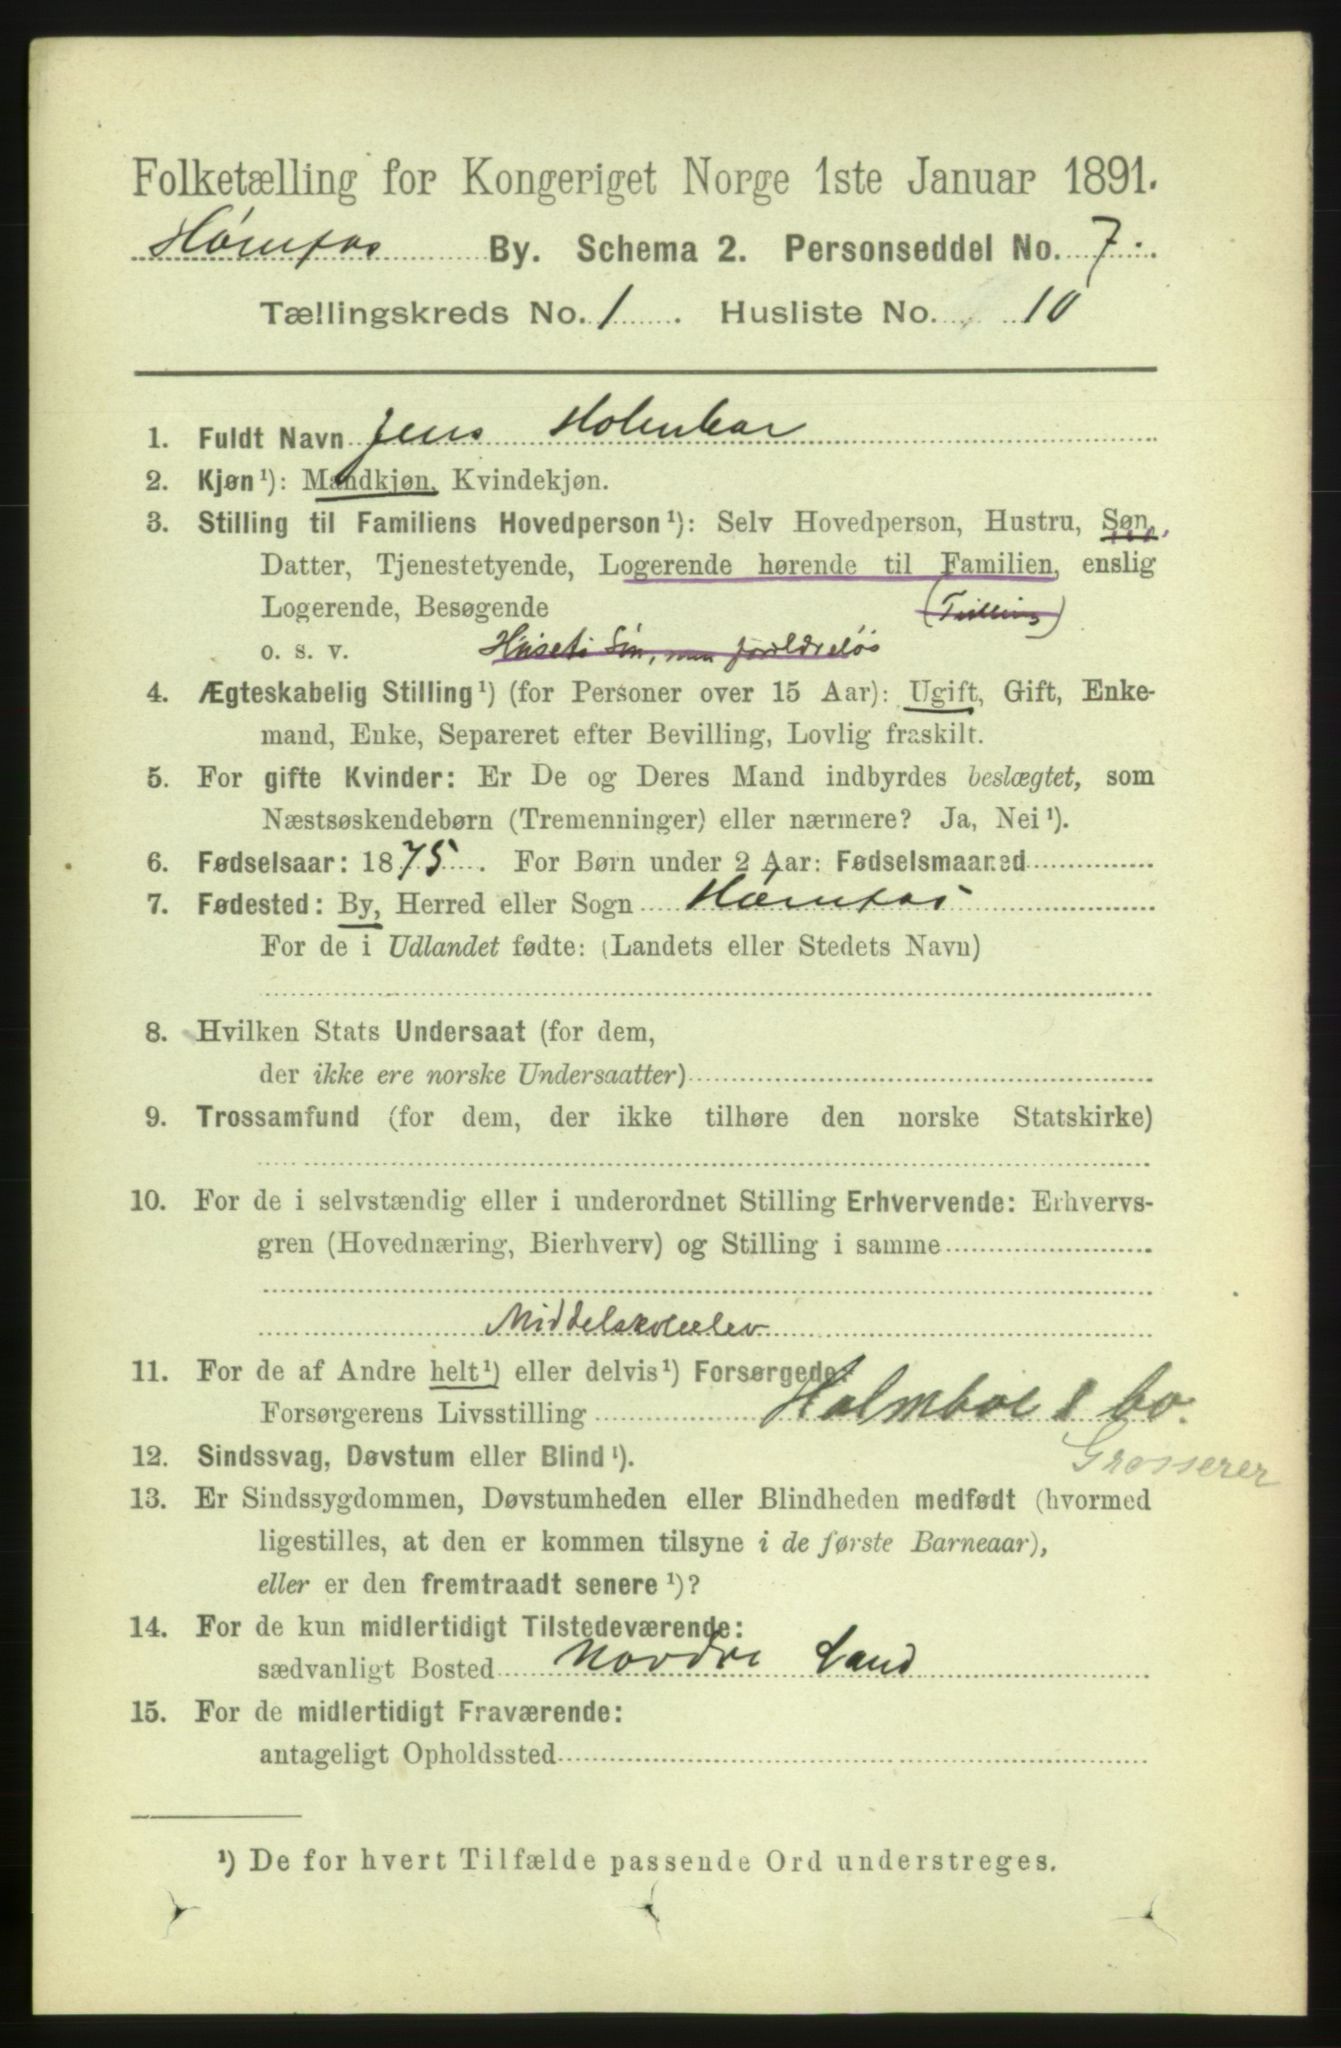 Folketælling for Kongeriget Norge 1ste Januar 1891.
By. Schema 2. Personseddel No. 7.
Tællingskreds No. 1. Husliste No. 10
1. Fuldt Navn Jens
2. Kjøn¹): Mandkjøn, Kvindekjøn.
3. Stilling til Familiens Hovedperson¹): Selv Hovedperson, Hustru, Søn,
Datter, Tjenestetyende, Logerende hørende til Familien, enslig
Logerende, Besøgende
o. s. v. Husets Søn, men forældreløs
4. Ægteskabelig Stilling¹) (for Personer over 15 Aar): Ugift, Gift, Enke-
mand, Enke, Separeret efter Bevilling, Lovlig fraskilt.
5. For gifte Kvinder: Er De og Deres Mand indbyrdes beslægtet, som
Næstsøskendebørn (Tremenninger) eller nærmere? Ja, Nei¹).
6. Fødselsaar: 1875. For Børn under 2 Aar: Fødselsmaaned
7. Fødested: By, Herred eller Sogn
For de i Udlandet fødte: (Landets eller Stedets Navn)
8. Hvilken Stats Undersaat (for dem,
der ikke ere norske Undersaatter)
9. Trossamfund (for dem, der ikke tilhøre den norske Statskirke)
10. For de i selvstændig eller i underordnet Stilling Erhvervende: Erhvervs-
gren (Hovednæring, Bierhverv) og Stilling i samme
Middelskoleelev
11. For de af Andre helt¹) eller delvis¹) Forsørgede:
Forsørgerens Livsstilling Holmboe & Co.
Grosserer
12. Sindssvag, Døvstum eller Blind¹).
13. Er Sindssygdommen, Døvstumheden eller Blindheden medfødt (hvormed
ligestilles, at den er kommen tilsyne i de første Barneaar),
eller er den fremtraadt senere¹)?
14. For de kun midlertidigt Tilstedeværende:
sædvanligt Bosted Nordre Land
15. For de midlertidigt Fraværende:
antageligt Opholdssted
¹) De for hvert Tilfælde passende Ord understreges.